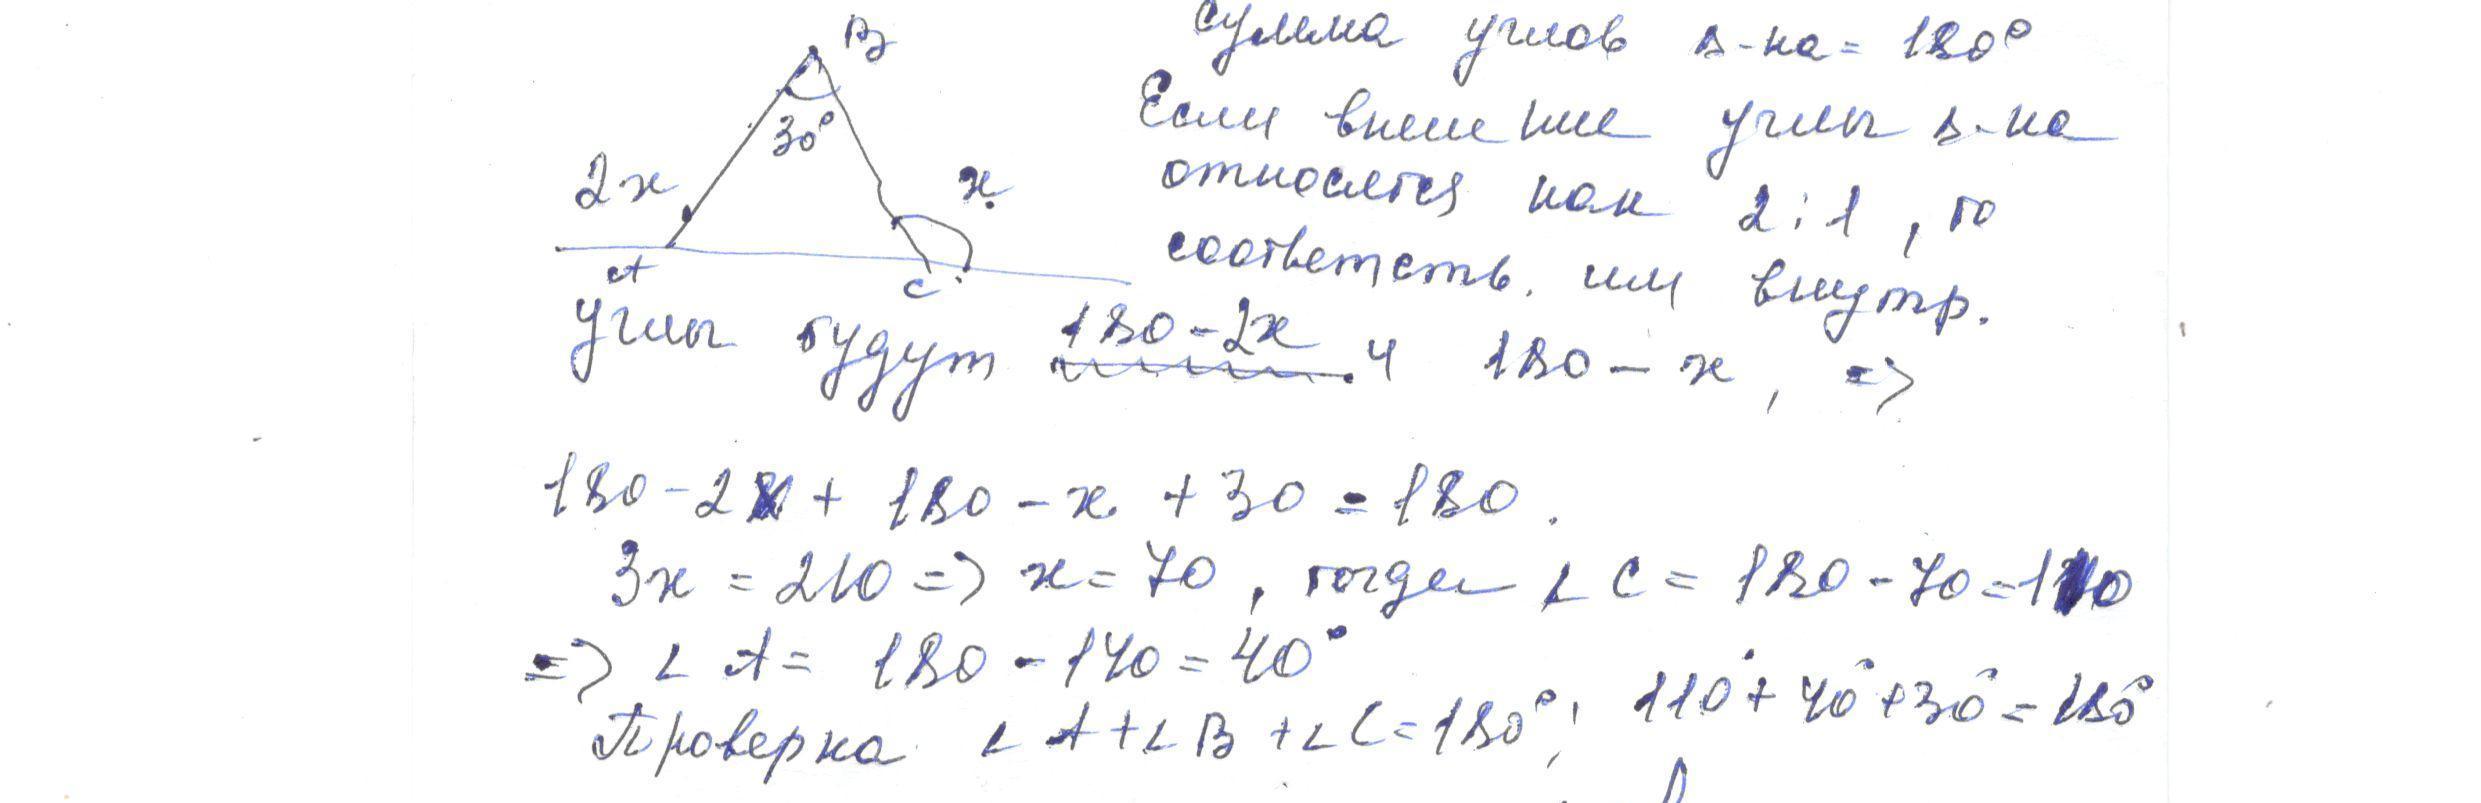 B
30°
2x
x
A
C
сумма углов Δ-ка = 180°
Если внешние углы Δ-ка
относятся как 2:1, то
соответств. им внутр.
углы будут 180-2x и 180-x, =>
180-2x + 180-x +30 = 180.
3x = 210 => x = 70, тогда ∠C = 180-70=110
=> ∠A = 180-140=40°
Проверка ∠A+∠B+∠C=180°; 110°+40°+30°=180°